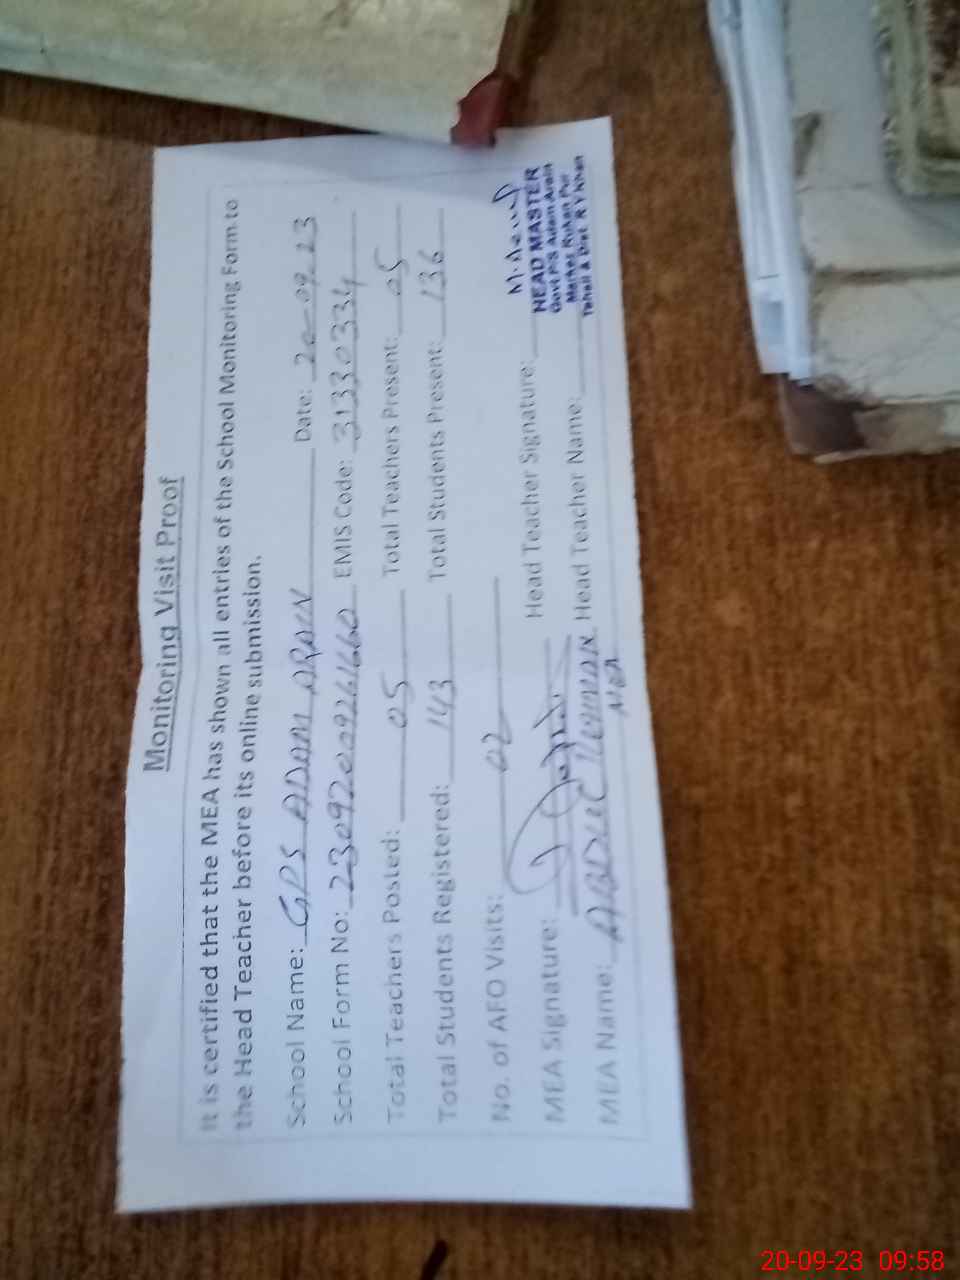 Monitoring Visit Proof
It is certified that the MEA has shown all entries of the School Monitoring Form to
the Head Teacher before its online submission.
School Name: GPS ADAM ARAIN Date: 20-09-23
School Form No: 23092009261660 EMIS Code: 31330334
Total Teachers Posted: 05 Total Teachers Present: 05
Total Students Registered: 143 Total Students Present: 136
No. of AFO Visits: 02
MEA Signature: Head Teacher Signature:
HEAD MASTER
Govt P/S Adam Arain
Markaz Rukan Pur
Tehsil & Dist. R Y Khan
MEA Name: Head Teacher Name:
MEA
20-09-23 09:58